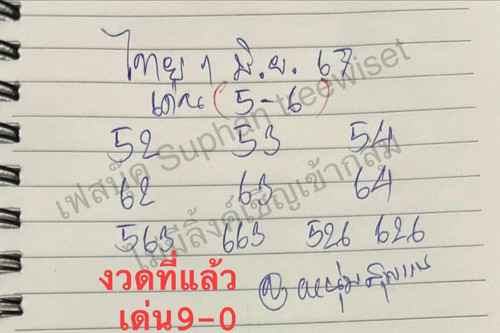 ไทย 1 มิ.ย. 67
เด่น (5-6)
52 53 54
62 63 64
563 663 526 626
เฟสบุ๊ค Suphan teewiset
ไม่มีลิ้งค์เชิญเข้ากลุ่ม
งวดที่แล้ว
เด่น9-0